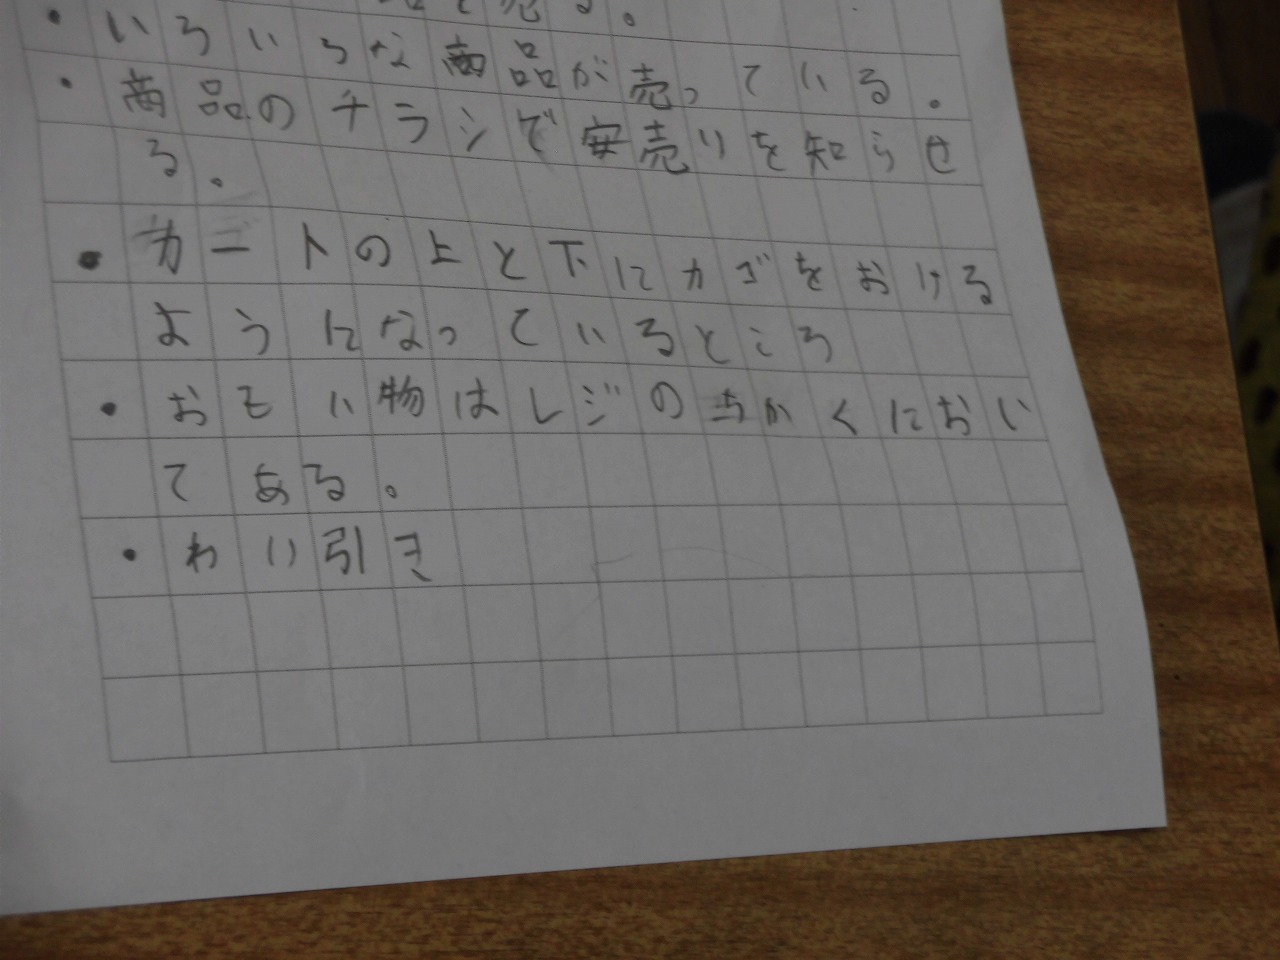 て売る。
・いろいろな商品が売っている。
・商品のチラシで安売りを知らせ
る。
・カートの上と下にカゴをおける
ようになっているところ
・おもい物はレジのちかくにおい
てある。
・わり引き